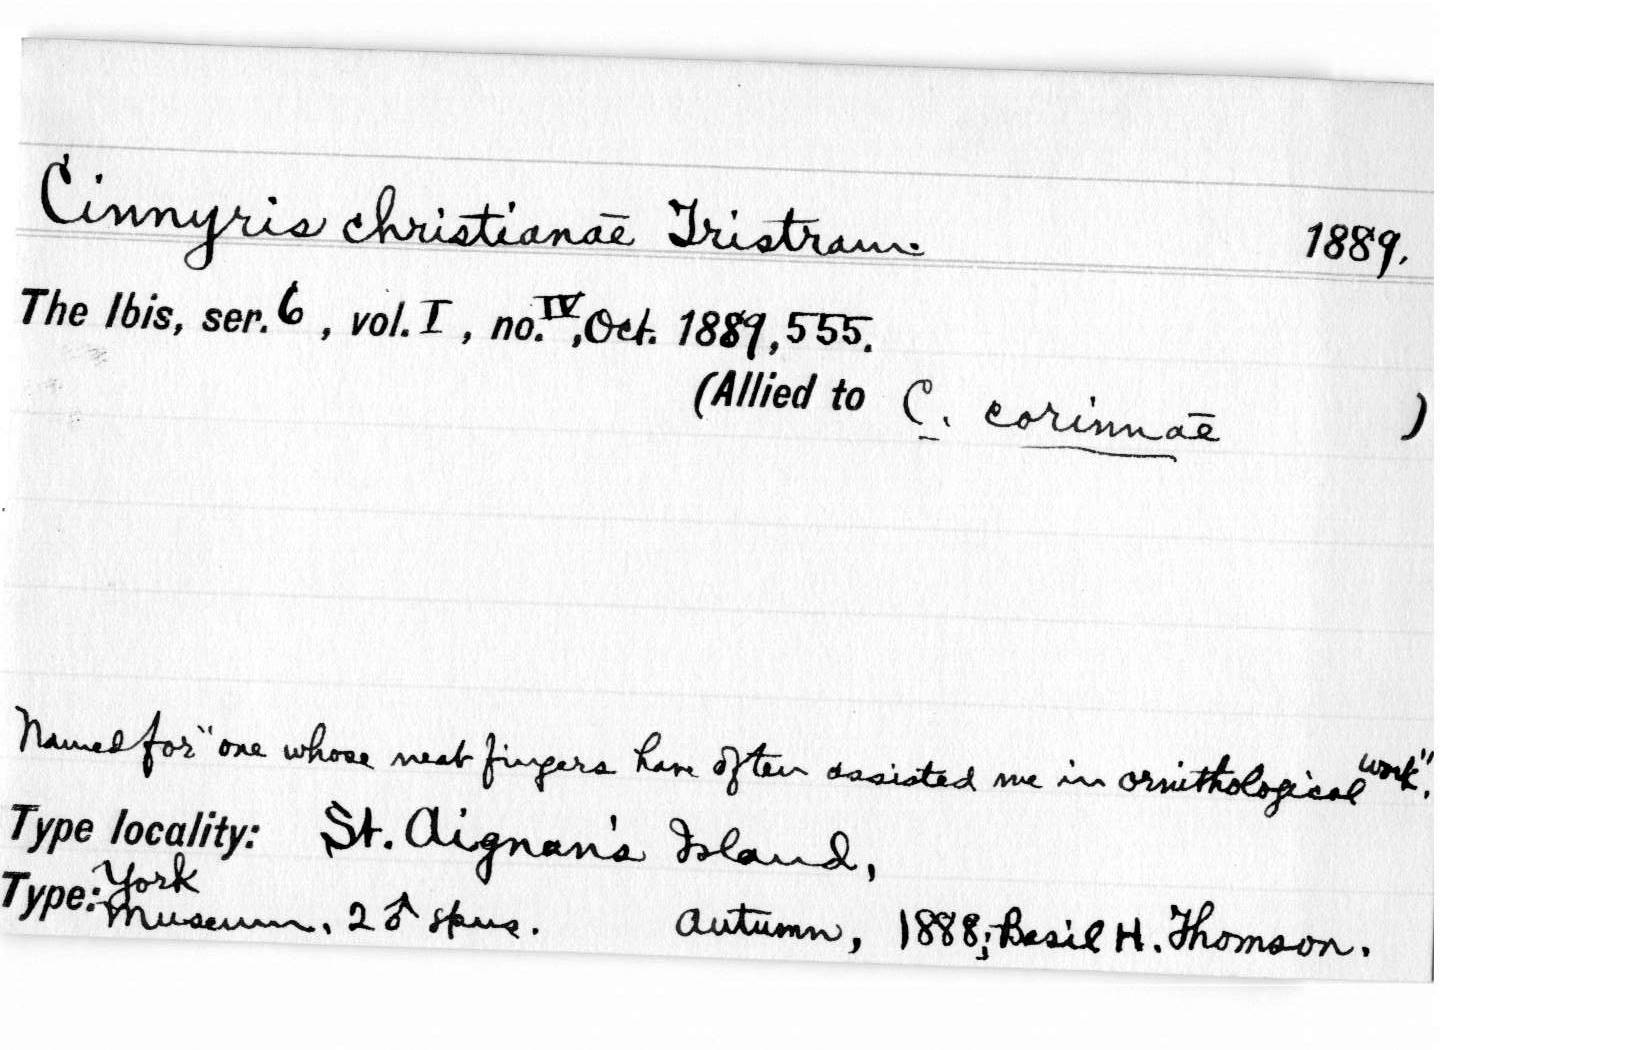 Cinnyris christianāe Tristram. 1889.
The Ibis, ser. 6, vol. I, no. IV, Oct. 1889, 555.
(Allied to C. corinnāe )
Named for "one whose neat fingers have often assisted me in ornithological work".
Type locality: St. Aignan's Island,
Type: York Museum. 2 ♂ spms. Autumn, 1888; Basil H. Thomson.